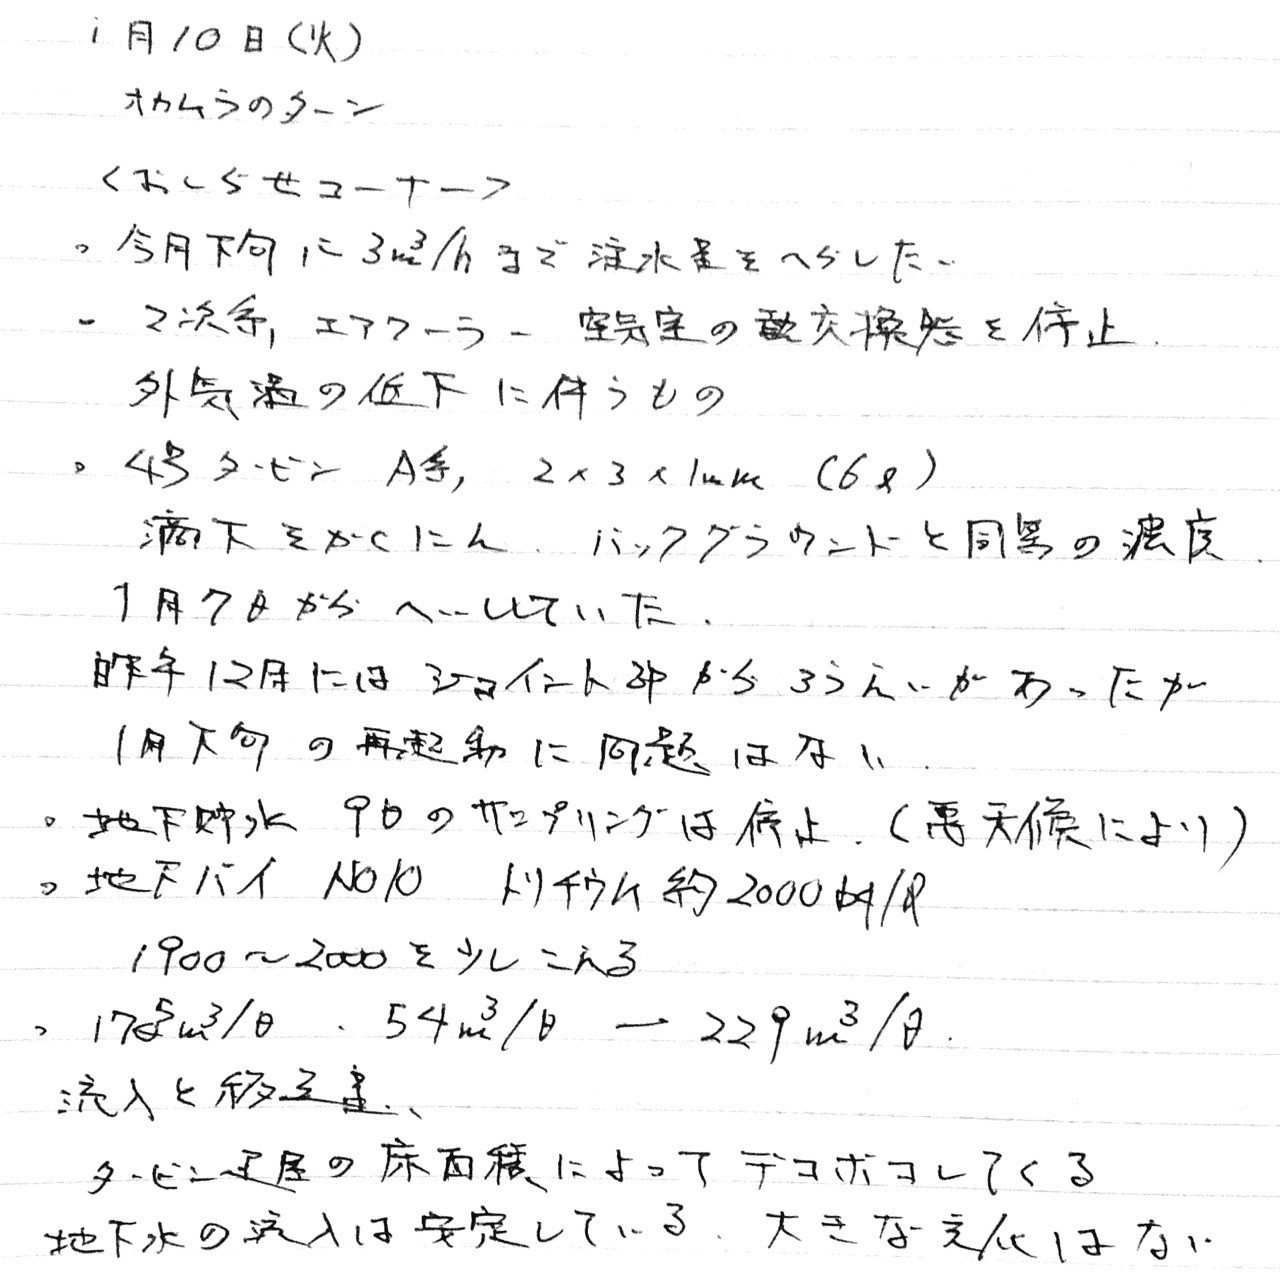 1月10日(火)
オカムラのターン
<おしらせコーナー>
。今月下旬に3m³/hまで注水量をへらしたい
- 2次系, エアクーラー 空気室の熱交換態を停止.
外気温の低下に伴うもの
。4号タービン A系, 2×3×1mm (6ℓ)
滴下をかくにん. バックグラウンドと同等の濃度.
1月7日からへいしていた.
昨年12月にはジョイント部からろうえいがあったが
1月下旬の再起動に問題はない.
。地下貯水 9日のサンプリングは停止. (悪天候により)
。地下バイ NO10 トリチウム約2000Bq/ℓ
1900~2000を少しこえる
。175m³/日 . 54m³/日 → 229m³/日.
流入と移送量、
タービン建屋の床面積によってデコボコしてくる
地下水の流入は安定している. 大きな変化はない